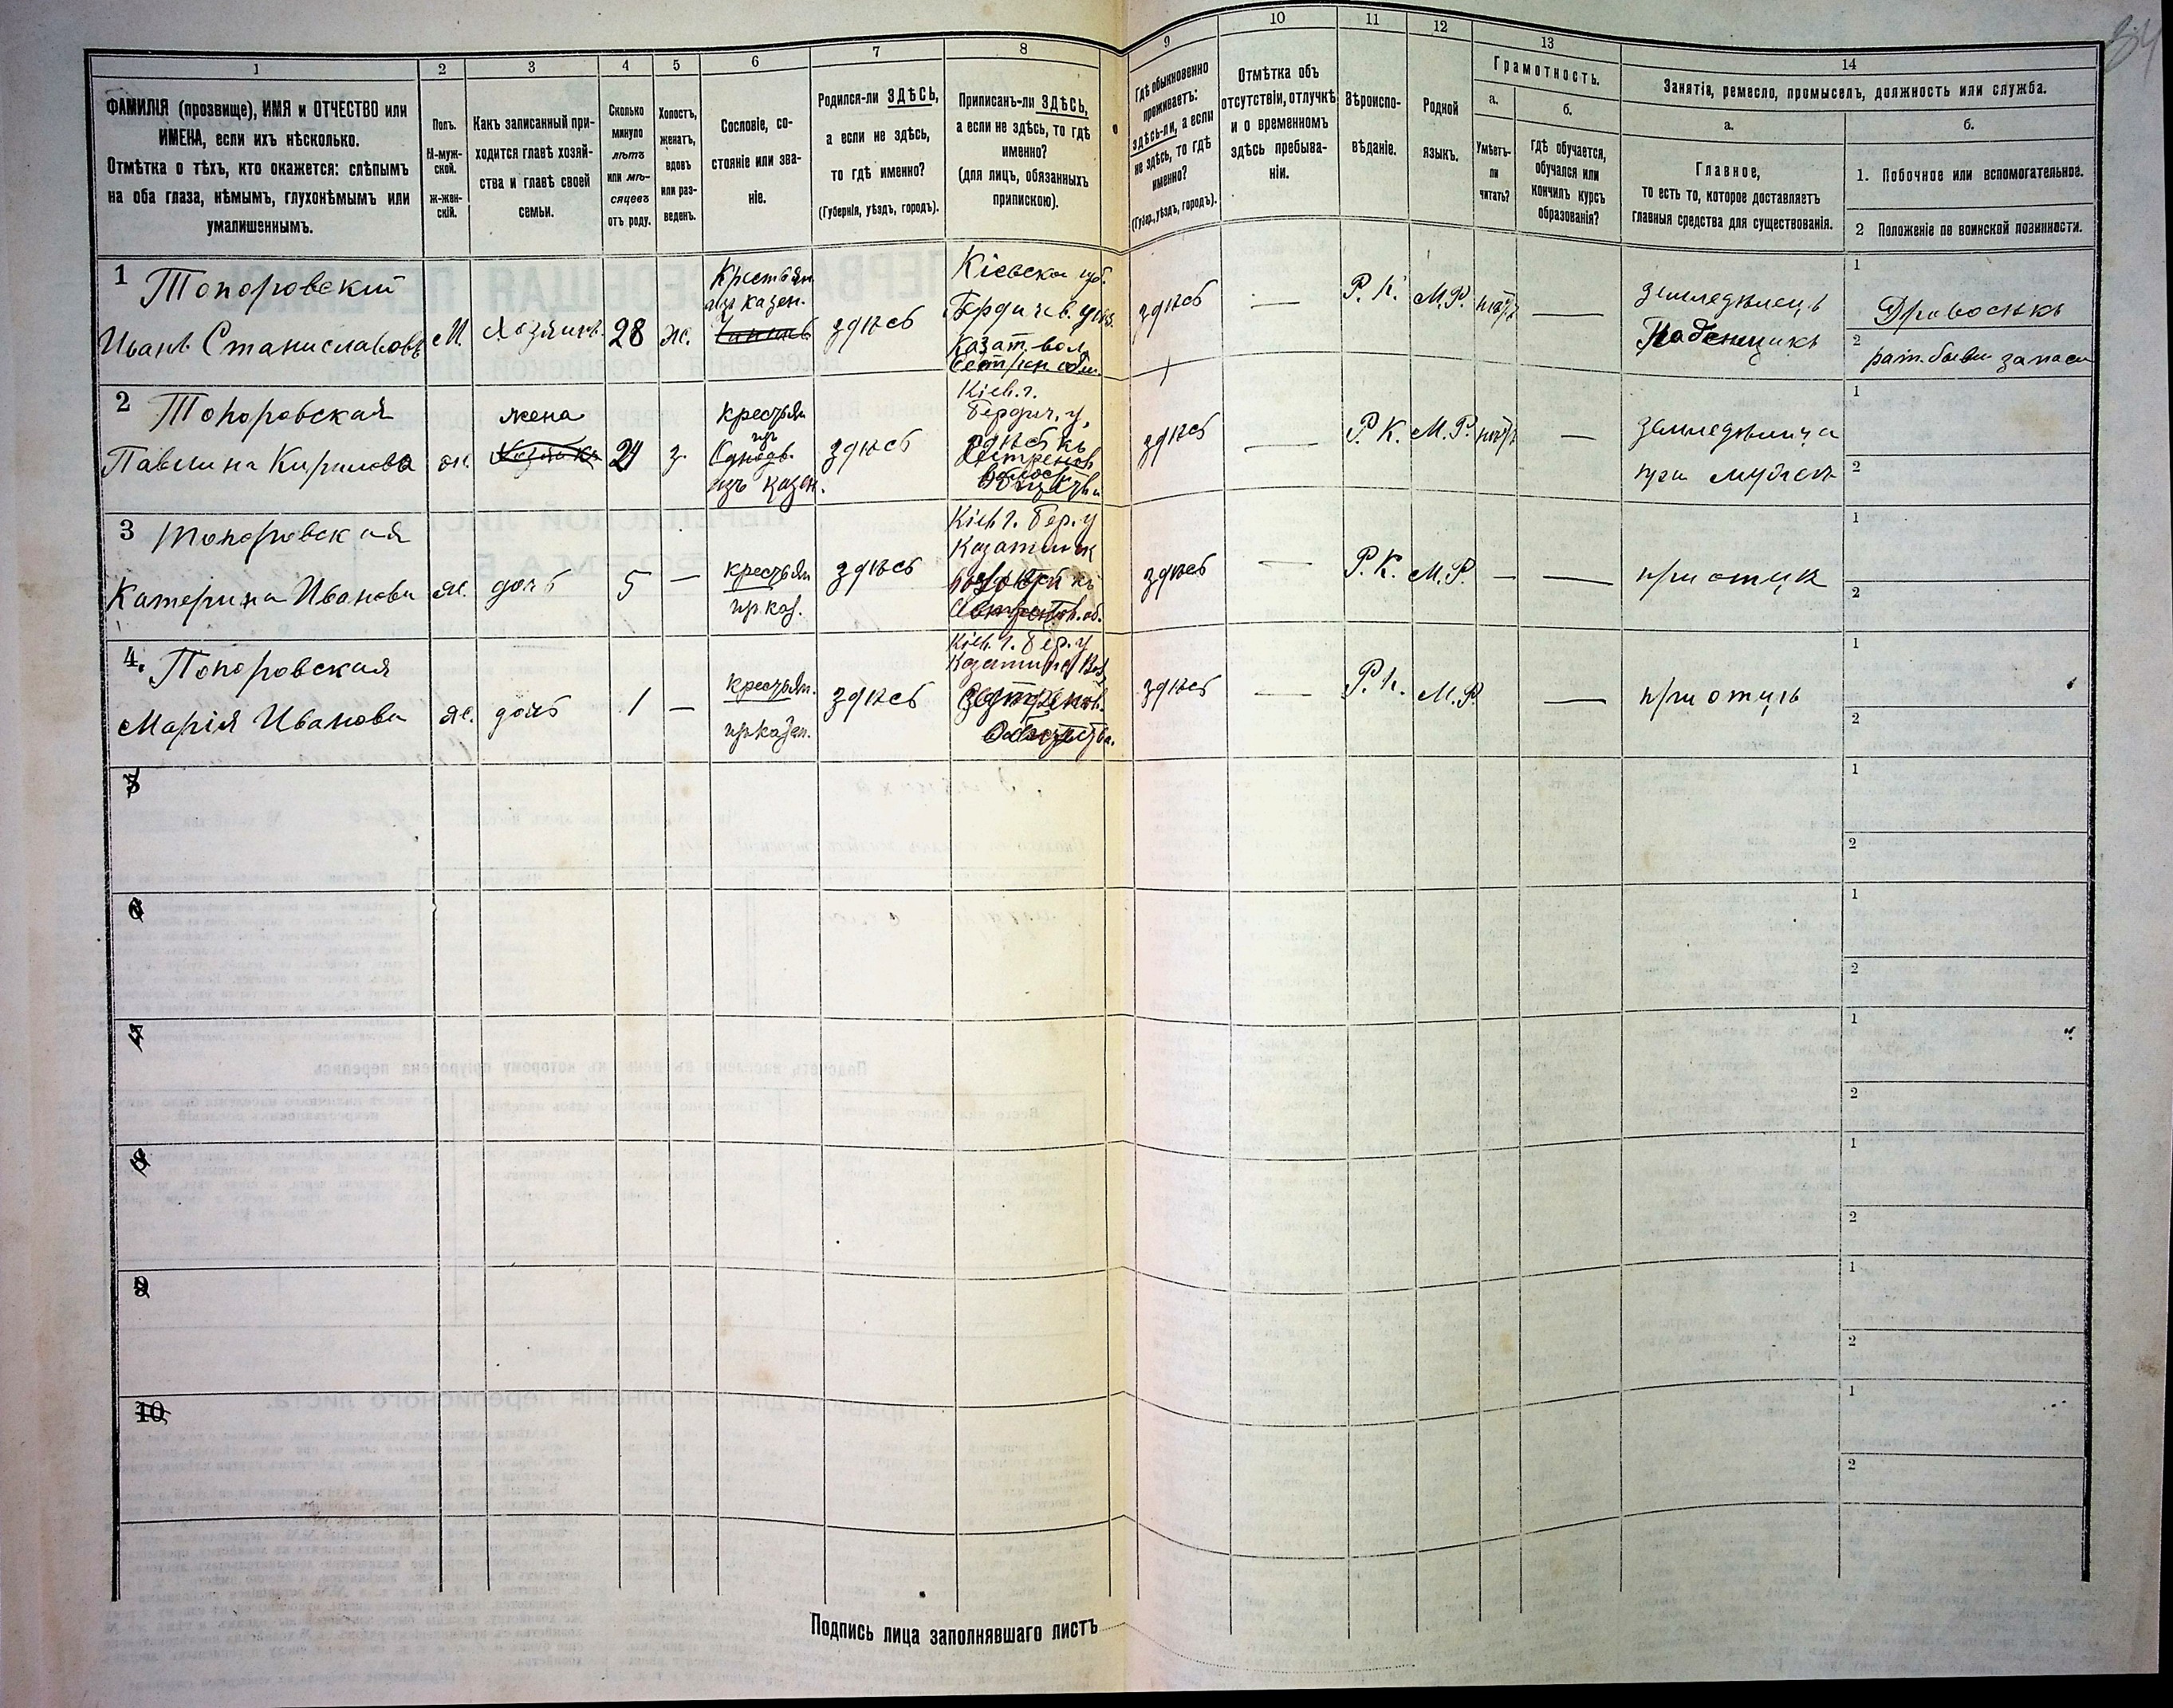 34
1
2
3
4
5
6
7
8
9
10
11
12
13
14
ФАМИЛІЯ (прозвище), ИМЯ и ОТЧЕСТВО или
ИМЕНА, если ихъ нѣсколько.
Отмѣтка о тѣхъ, кто окажется: слѣпымъ
на оба глаза, нѣмымъ, глухонѣмымъ или
умалишеннымъ.
Полъ.
М-муж-
ской.
ж-жен-
скій.
Какъ записанный при-
ходится главѣ хозяй-
ства и главѣ своей
семьи.
Сколько
минуло
лѣтъ
или мѣ-
сяцевъ
отъ роду.
Холостъ,
женатъ,
вдовъ
или раз-
веденъ.
Сословіе, со-
стояніе или зва-
ніе.
Родился-ли ЗДѢСЬ,
а если не здѣсь,
то гдѣ именно?
(Губернія, уѣздъ, городъ).
Приписанъ-ли ЗДѢСЬ,
а если не здѣсь, то гдѣ
именно?
(для лицъ, обязанныхъ
припискою).
Гдѣ обыкновенно
проживаетъ:
здѣсь-ли, а если
не здѣсь, то гдѣ
именно?
(Губер., уѣздъ, городъ).
Отмѣтка объ
отсутствіи, отлучкѣ
и о временномъ
здѣсь пребыва-
ніи.
Вѣроиспо-
вѣданіе.
Родной
языкъ.
Грамотность.
а.
Умѣетъ-
ли
читать?
б.
Гдѣ обучается,
обучался или
кончилъ курсъ
образованія?
Занятія, ремесло, промыселъ, должность или служба.
а.
Главное,
то есть то, которое доставляетъ
главныя средства для существованія.
б.
1. Побочное или вспомогательное.
2 Положеніе по воинской повинности.
1 Топоровскій
Иванъ Станиславовъ
М.
Хозяинъ
28
ж.
Крестьян.
изъ казен.
здѣсь
Кіевской губ.
Бердичев. уѣз.
Казат. вол.
здѣсь
—
Р. К.
М.Р.
—
земледѣлецъ
Поденщикъ
1
Дровосѣкъ
2
2 Топоровская
Павлина Кирилова
ж.
жена
з.
крестьян
изъ
Однодв.
изъ казен.
здѣсь
Кіев. г.
Бердич. у,
здѣсь
—
Р. К.
М.Р.
—
земледѣлица
при мужѣ
1
2
3 Топоровская
Катерина Иванова
ж.
дочь
5
—
крестьян
из каз.
здѣсь
Кіев. г. Бер. у
здѣсь
—
Р. К.
М.Р.
—
—
при отцѣ
1
2
4. Топоровская
Марія Иванова
ж.
дочь
1
—
крестьян.
из казен.
здѣсь
Кіев. г. Бер. у
здѣсь
—
Р. К.
М.Р.
—
при отцѣ
1
2
5
1
2
6
1
2
7
1
2
8
1
2
9
1
2
10
1
2
Подпись лица заполнявшаго листъ